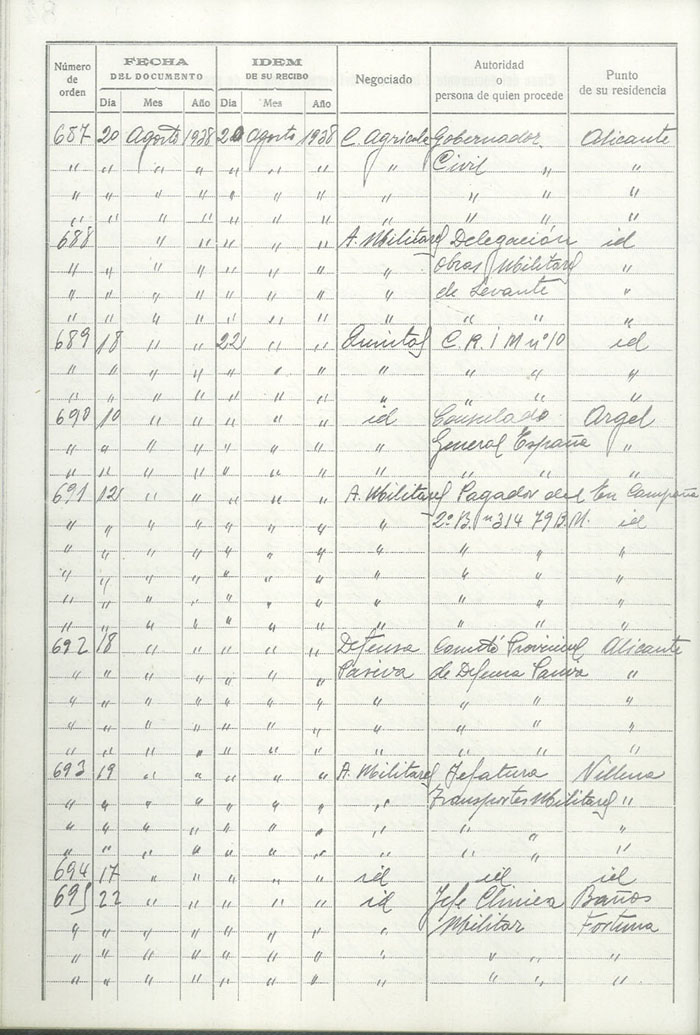 Número de orden | FECHA DEL DOCUMENTO | IDEM DE SU RECIBO | Negociado | Autoridad o persona de quien procede | Punto de su residencia
Día | Mes | Año | Día | Mes | Año
687 20 Agosto 1938 20 Agosto 1938 C. Agricola Gobernador Alicante
" " " " " " " " Civil " "
" " " " " " " " " " "
" " " " " " " " " " "
688 " " " " " " A. Militares Delegación id
" " " " " " " " Obras Militares "
" " " " " " " " de Levante "
" " " " " " " " " " "
689 18 " " 22 " " Quintas C. R. I M nº 10 id
" " " " " " " " " " "
" " " " " " " " " " "
690 10 " " " " " id Consulado Argel
" " " " " " " " General España "
" " " " " " " " " " "
691 12 " " " " " A. Militares Pagador del En Campaña
" " " " " " " " 2º B. nº 314 79 B.M. id
" " " " " " " " " " "
" " " " " " " " " " "
" " " " " " " " " " "
" " " " " " " " " " "
692 18 " " " " " Defensa Comité Provincial Alicante
" " " " " " " Pasiva de Defensa Pasiva "
" " " " " " " " " " "
" " " " " " " " " " "
" " " " " " " " " " "
693 19 " " " " " A. Militares Jefatura Villena
" " " " " " " " Transportes Militares "
" " " " " " " " " " "
" " " " " " " " " " "
694 17 " " " " " id id id
695 22 " " " " " id Jefe Clinica Baños
" " " " " " " " Militar Fortuna
" " " " " " " " " " "
" " " " " " " " " " "